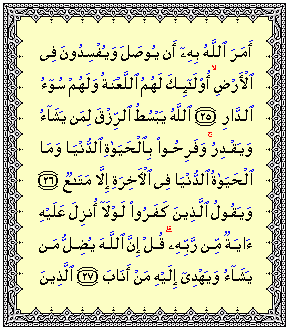 أَمَرَ ٱللَّهُ بِهِۦٓ أَن يُوصَلَ وَيُفْسِدُونَ فِى
ٱلْأَرْضِ ۙ أُو۟لَـٰٓئِكَ لَهُمُ ٱللَّعْنَةُ وَلَهُمْ سُوٓءُ
ٱلدَّارِ ﴿٢٥﴾ ٱللَّهُ يَبْسُطُ ٱلرِّزْقَ لِمَن يَشَآءُ
وَيَقْدِرُ ۚ وَفَرِحُوا۟ بِٱلْحَيَوٰةِ ٱلدُّنْيَا وَمَا
ٱلْحَيَوٰةُ ٱلدُّنْيَا فِى ٱلْـَٔاخِرَةِ إِلَّا مَتَـٰعٌ ﴿٢٦﴾
وَيَقُولُ ٱلَّذِينَ كَفَرُوا۟ لَوْلَآ أُنزِلَ عَلَيْهِ
ءَايَةٌ مِّن رَّبِّهِۦ ۗ قُلْ إِنَّ ٱللَّهَ يُضِلُّ مَن
يَشَآءُ وَيَهْدِىٓ إِلَيْهِ مَنْ أَنَابَ ﴿٢٧﴾ ٱلَّذِينَ